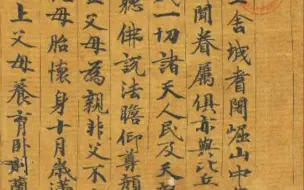 舍城耆闍崛山中
聞眷屬俱亦與比丘
一切諸天人民及天
聽佛說法瞻仰尊顏
父母為親非父不
母胎懷身十月歲滿
上父母養育卧則蘭